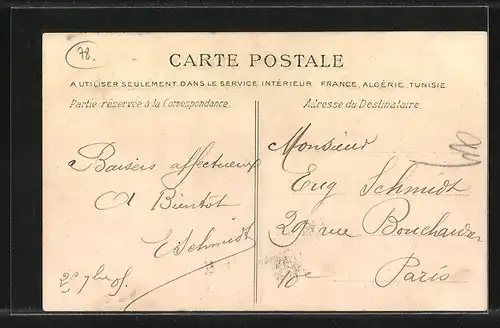 78.
CARTE POSTALE
A UTILISER SEULEMENT DANS LE SERVICE INTÉRIEUR FRANCE, ALGÉRIE, TUNISIE
Partie réservée à la Correspondance.
Adresse du Destinataire.
Baisers affectueux
A Bientôt
ESchmidt
7bre 05
Monsieur
Eug Schmidt
29 rue Bouchardon
10e Paris